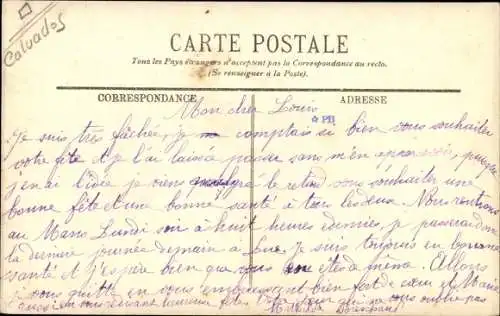 Calvados
CARTE POSTALE
Tous les Pays étrangers n'acceptent pas la Correspondance au recto.
(Se renseigner à la Poste).
CORRESPONDANCE
ADRESSE
Mon cher Louis
PH
Je suis très fâchée, je comptais si bien vous souhaiter
votre fête et je l'ai laissé passer sans m'en apercevoir, puisque
j'en ai l'idée je viens malgré le retard vous souhaiter une
bonne fête et une bonne santé à tous les deux. Nous rentrons
au Mans Lundi soir à huit heures demies, je passerai donc
la dernière journée demain à Je suis toujours en bonne
santé et j'espère bien que vous en êtes de même. Allons
je vous quitte en vous embrassant bien fort de cœur et Marie
aussi en vous devant Ta sœur qui ne vous oublie pas